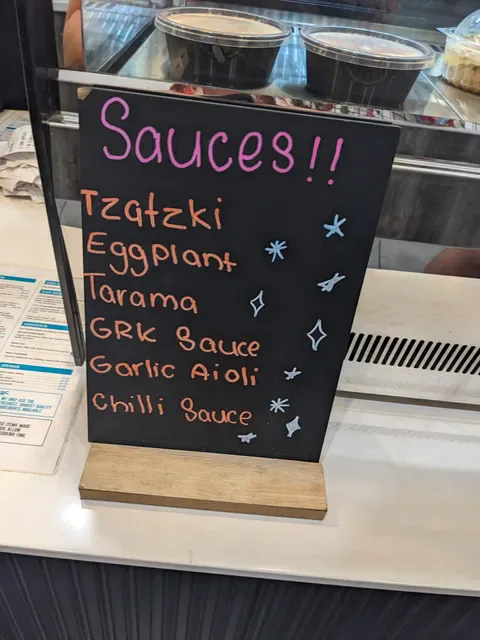 Sauces!!
Tzatzki
Eggplant
Tarama
GRK Sauce
Garlic Aioli
Chilli Sauce